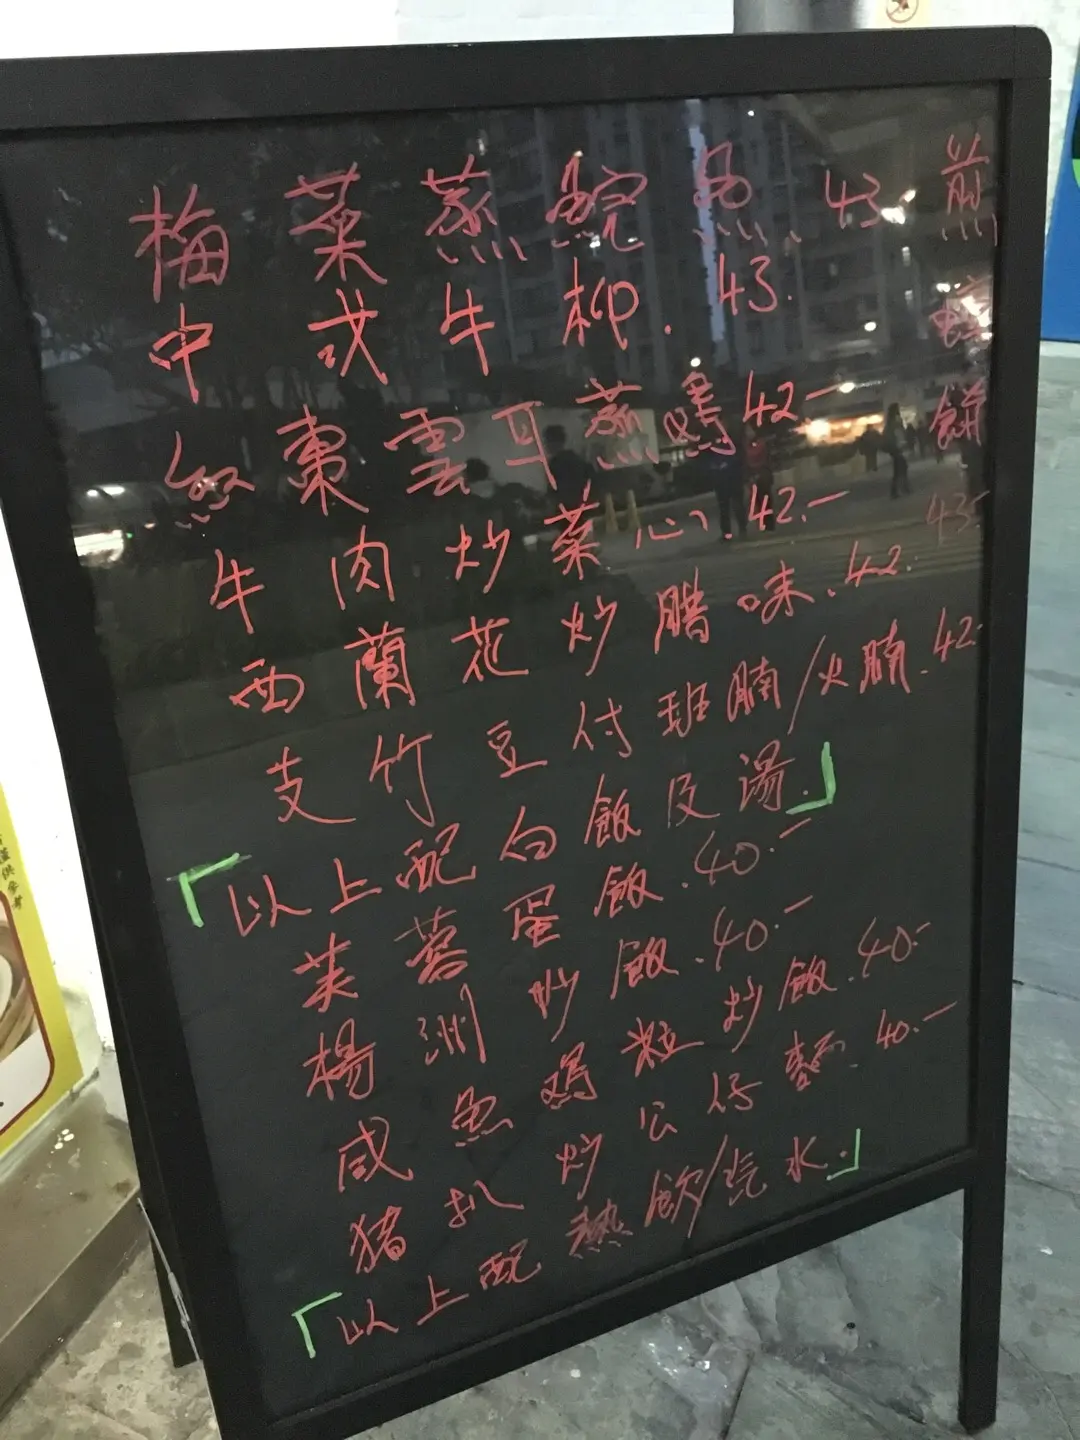 梅菜蒸鯇魚.43
中式牛柳.43.
紅棗雲耳蒸雞42.-
牛肉炒菜心.42.-
西蘭花炒腊味.42.
支竹豆付班腩/火腩.42.
「以上配白飯及湯.」
芙蓉蛋飯.40.-
楊洲炒飯.40.-
咸魚鸡粒炒飯.40.-
猪扒炒公仔麵.40.-
「以上配熱飲/汽水.」
煎蠔餅43.-